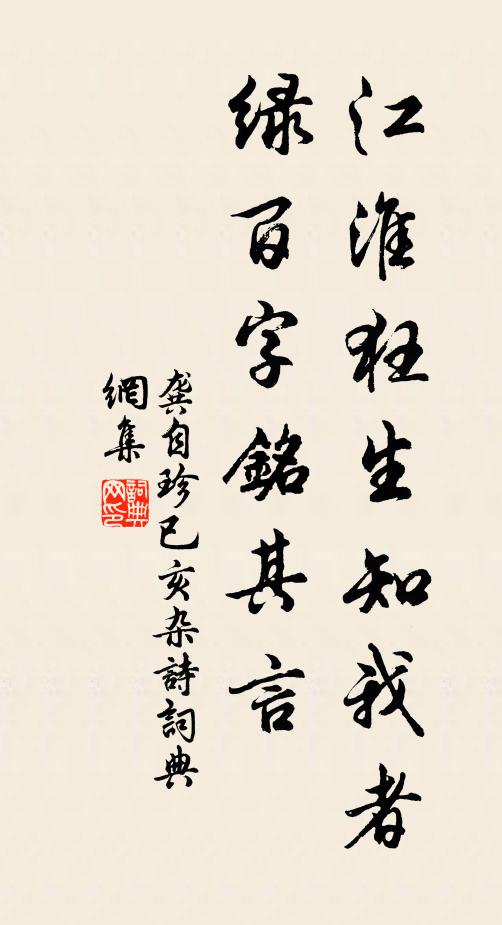 江淮狂生知我者
綠百字銘其言
龔自珍已亥杂詩詞典
網集
詞典網印